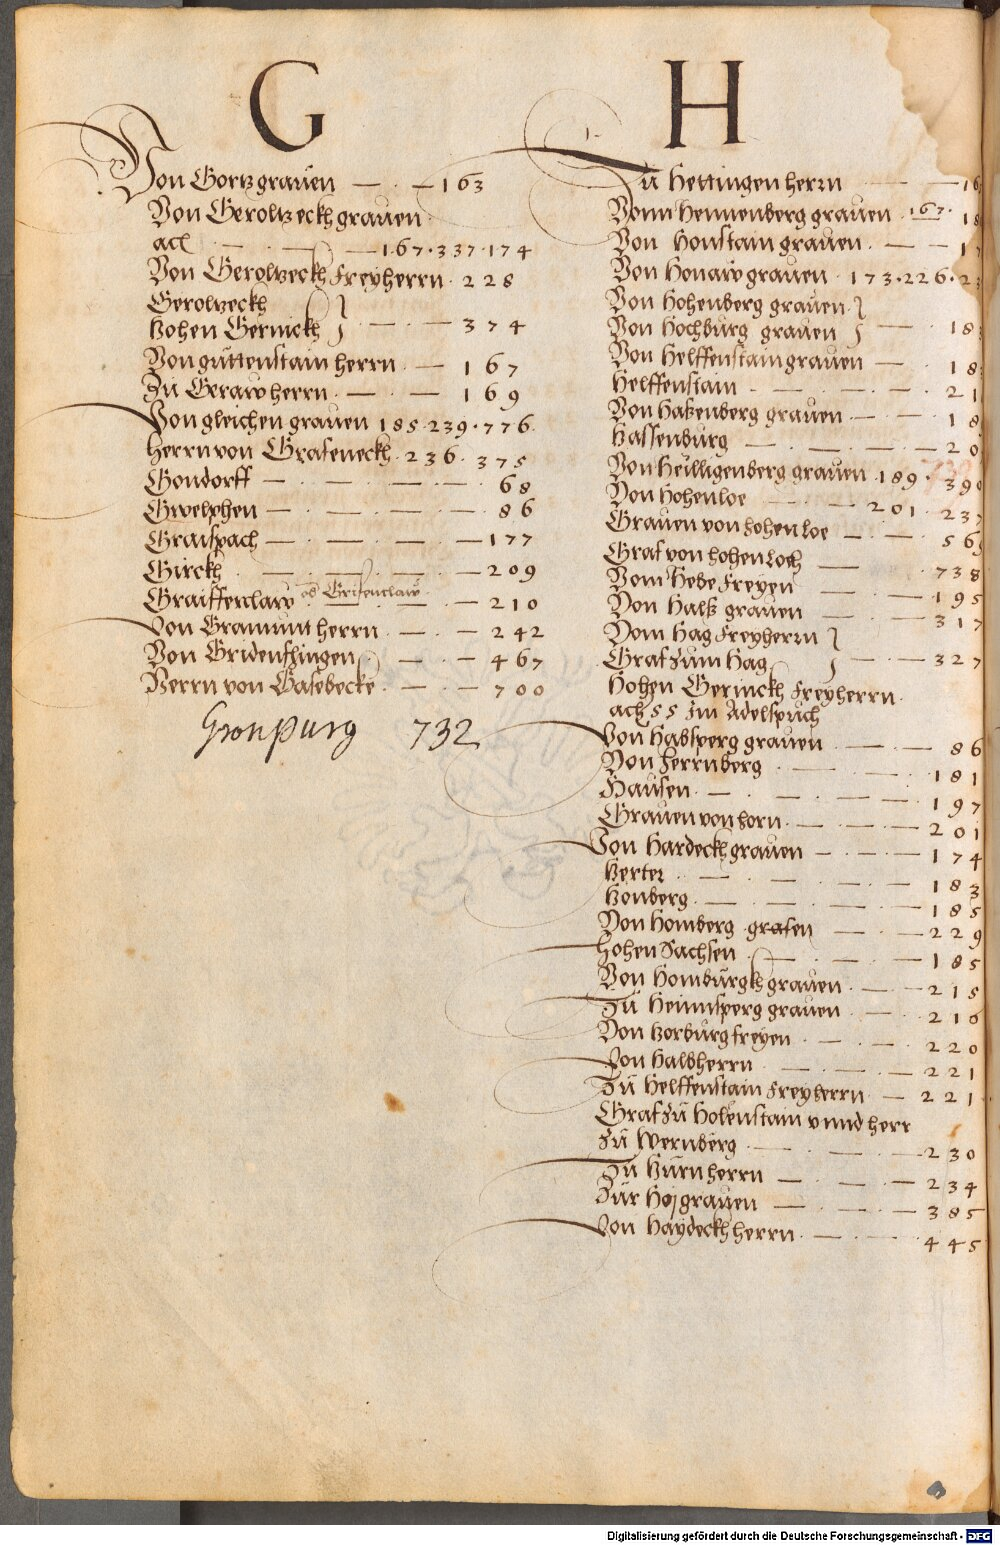 G
Von Gortz grauen — · — 163
Von Geroltzeckh grauen
ach · — · — 167 · 337 · 174
Von Gerolzeckh Freyherrn · 228
Gerolzeckh
Hohen Gerinckh } · — · — 374
Von guttenstain herrn — · 167
Zu Geraw herrn · — · — 169
Von gleichen grauen 185 · 239 · 776
Herrn von Grafeneckh · 236 · 375
Gondorff — · — · — · — 68
Gwelphen — · — · — · — 86
Graispach — · — · — · — 177
Girckh · — · — · — 209
Graiffenclaw od Grifenclaw · — 210
Von Gramunt herrn · — · — 242
Von Gridenfhingen · — · — 467
Herrn von Gasebecke · — · — 700
Gronpurg 732
H
Zu Hettingen herrn — — 16
Vonn Hennenberg grauen · 167 · 18
Von Honstain grauen · — — 1
Von Honaw grauen · 173 · 226 · 23
Von Hohenberg grauen }
Von Hochburg grauen } — · 18
Von Helffenstain grauen — · 18
Helffenstain · — · — · — 21
Von Hakenberg grauen — · — 18
Hassenburg — · — · — 20
Von Heilligenberg grauen 189 · 390
Von Hohenloe — · — 201 · 237
Grauen von Hohenloe — · — 569
Graf von Hohenloch — 738
Vom Hebe Freyen — · — 195
Von Hals grauen — · — 317
Vom Hag Freyherrn }
Graf zum Hag } — · — 327
Hohen Gerinckh Freyherrn ·
ach 55 im Adelspruch
Von Habsperg grauen — · — 86
Von Herrnberg · — · — · 181
Hausen · — · — · — 197
Grauen von Horn · — · — 201
Von Hardeckh grauen — · — 174
Herter · — · — · — 183
Honberg · — · — · — 185
Von Homberg grafen — · — 229
Hohen Sachsen · — · — 185
Von Homburgkh grauen · — · 215
Zu Heinnsperg grauen — · — 216
Von Horburg freyen · — · 220
Von Halbherrn — · — · — 221
Zu Helffenstain Freyherrn — 221
Graf zu Holenstain vnnd herr
zu Wernberg — · — · — 230
Zu Hurn herrn — · — · — 234
Zur Hoj grauen — · — · — 385
Von Haydeckh herrn · — · — 445
Digitalisierung gefördert durch die Deutsche Forschungsgemeinschaft - DFG